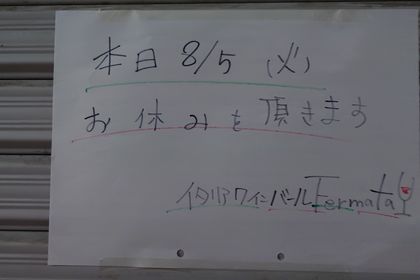 本日 8/5 (火)
お休みを頂きます
イタリアワインバール Fermata